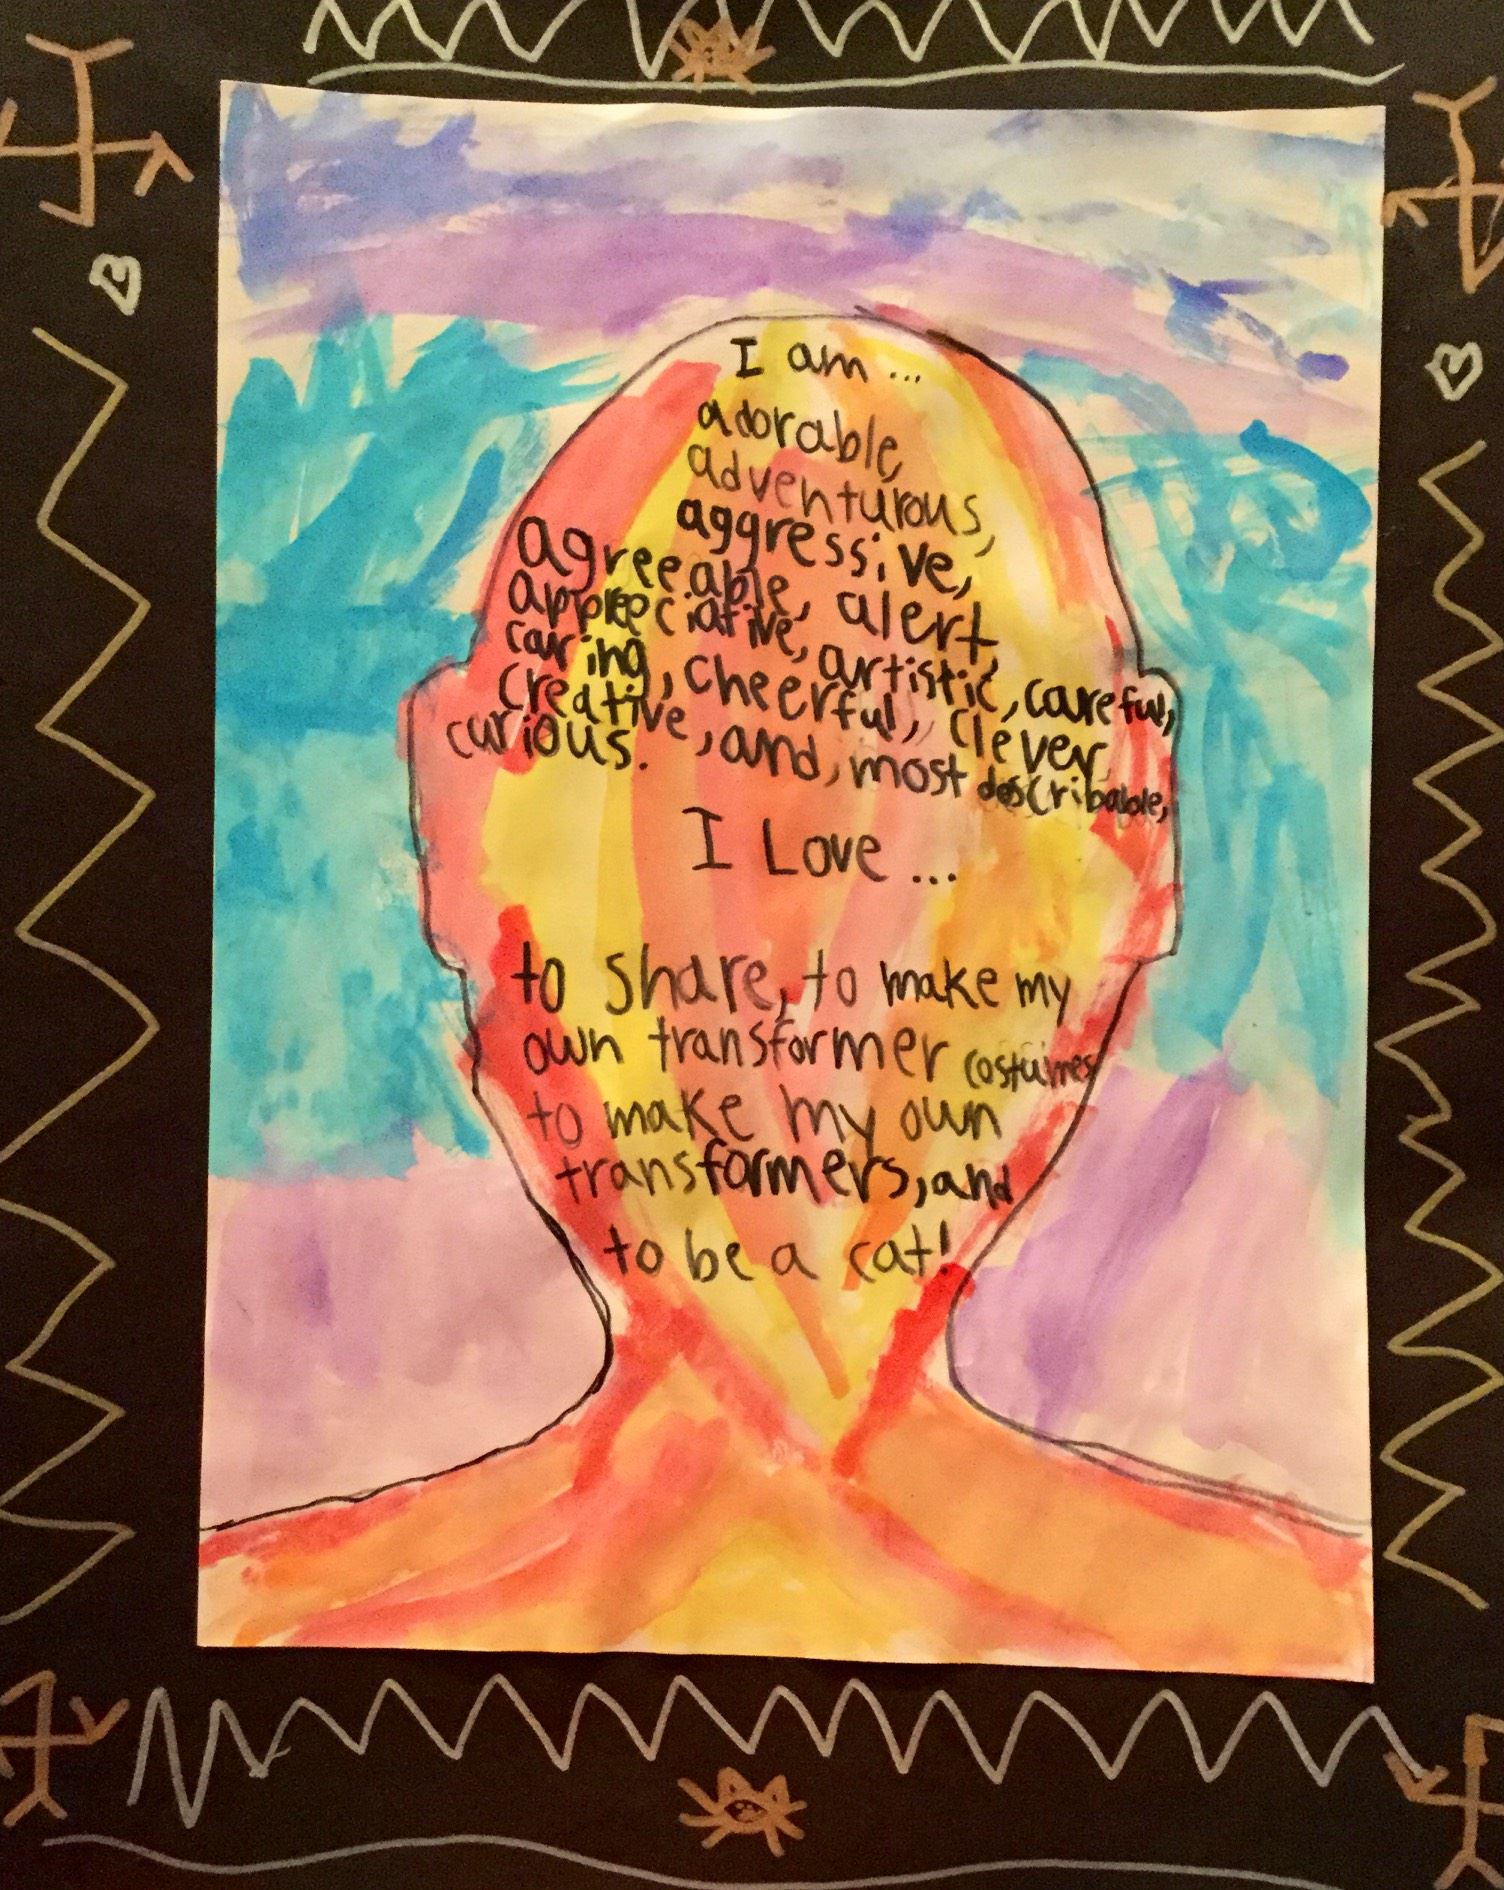 I am ...
adorable,
adventurous,
aggressive,
agreeable, alert,
appreciative, artistic, careful,
caring, cheerful, clever,
creative, and, most describable,
curious.
I Love ...
to share, to make my
own transformer costumes
to make my own
transformers, and
to be a cat!